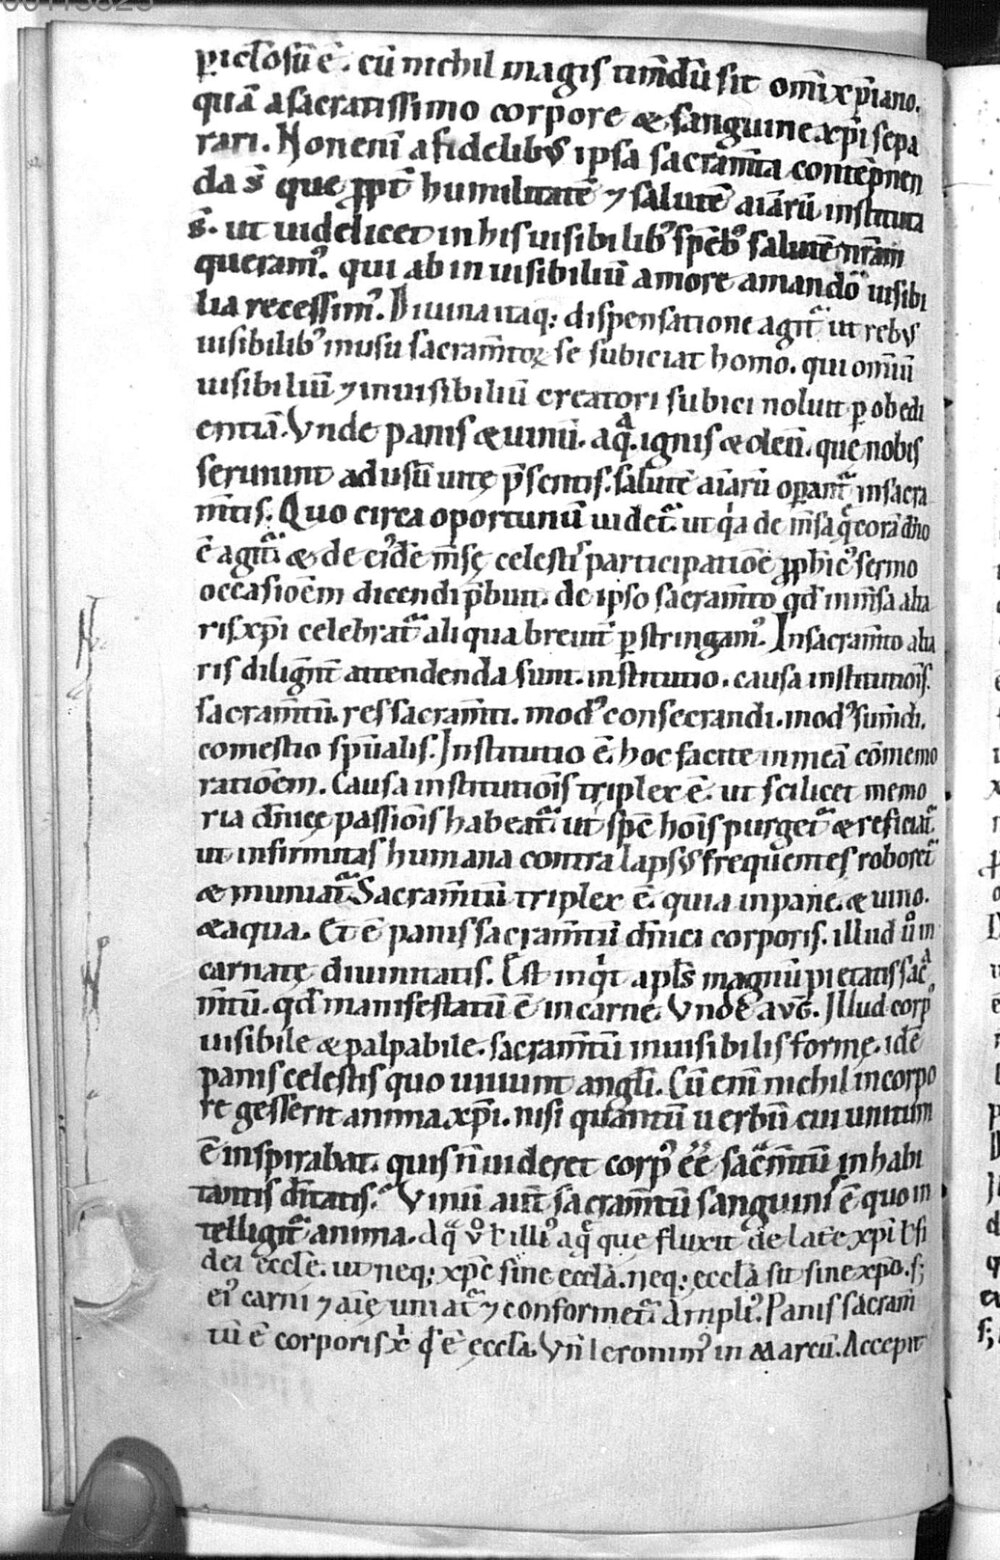 ꝑicl̄osū ē. cū nichil magis tim̄dū sit om̄i xp̄iano.
quā a sacratissimo corpore & sanguine xp̄i sepa
rari. Non eni̅ a fidelibus ipsa sacram̄ta contēpnen
da s̄ que ꝓpt̄ humilitatē ⁊ salutē aiarū instituta
s̄. ut uidelicet in his uisibilibꝰ spēbꝰ salutē nrām
queramꝰ. qui ab inuisibiliū amore amando uisibi
lia recessimꝰ. Diuina itaq; dispensatione agit᷑ ut rebus
uisibilibꝰ in usu sacram̄toꝝ se subiciat homo. qui om̄iū
uisibiliū ⁊ inuisibiliū creatori subici noluit ꝑ obedi
entiā. Vnde panis & uinū. aqͣ. ignis & oleū. que nobis
seruiunt ad usū uitę p̄sentis. salutē aīarū oꝑant᷑ in sacra
m̄tis. Quo circa oportunū uidet᷑ ut qͥa de m̄sa q̄ corā dn̄o
ē agit᷑ & de eiꝰdē m̄sę celestis participatiōe ꝓph̄icꝰ sermo
occasiōem dicendi p̄buit. de ipso sacram̄to qd̄ in m̄sa alta
ris xp̄i celebrat᷑ aliqua breuit̄ ꝑstringamꝰ. In sacram̄to alta
ris diligent̄ attendenda sunt. institutio. causa institutiōis.
sacram̄tū. res sacram̄ti. modꝰ consecrandi. modꝰ sum̄di.
comestio sp̄ualis. Institutio ē. hoc facite in meā cōmemo
ratiōem. Causa institutiōis triplex ē. ut scilicet memo
ria dn̄icę passiōis habeat᷑. ut spē hoīs purget᷑ & reficiat᷑.
ut infirmitas humana contra lapsus frequentes roboret᷑
& muniat᷑. Sacram̄tū triplex ē. quia in pane. & uino.
& aqua. Et ē panis sacram̄tū dn̄ici corporis. illud ů in
carnatę diuinitatis. Est inqͥt apl̄s magnū pietatis sac̄ͣ
m̄tū. qd̄ manifestatū ē in carne. Vnde aug̅. Illud corpꝰ
uisibile & palpabile. sacram̄tū inuisibilis formę. idē
panis celestis quo uiuunt angl̄i. Cū eni̅ nichil in corpo
re gesserit anima xp̄i. nisi quantū uerbū cui unitum
ē inspirabat. quis n̄ uideret corpꝰ ēē sac̄ͣm̄tū inhabi
tantis dītatis. Vinū aut̄ sacram̄tū sanguinis ē quo in
telligit᷑ anima. Aqͣ ů illiꝰ aqͣ que fluxit de latē xp̄i
dei eccl̄e. ut neq; xp̄c sine eccl̄a. neq; eccl̄a sit sine xp̄o. s;
eiꝰ carni ⁊ aīę uniat᷑ ⁊ conformet᷑. Ampliꝰ. Panis sacram̄
tū ē corporis xp̄i qd̄ ē eccl̄a. Vn̄ Ieronimꝰ in Marcū. Accepit